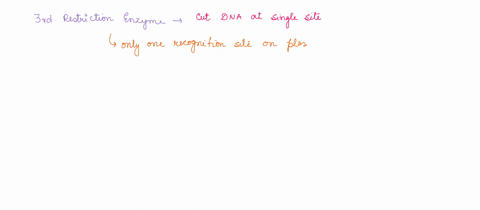 3rd Restriction Enzyme → Cut DNA at single site
↳ only one recognition site on plas